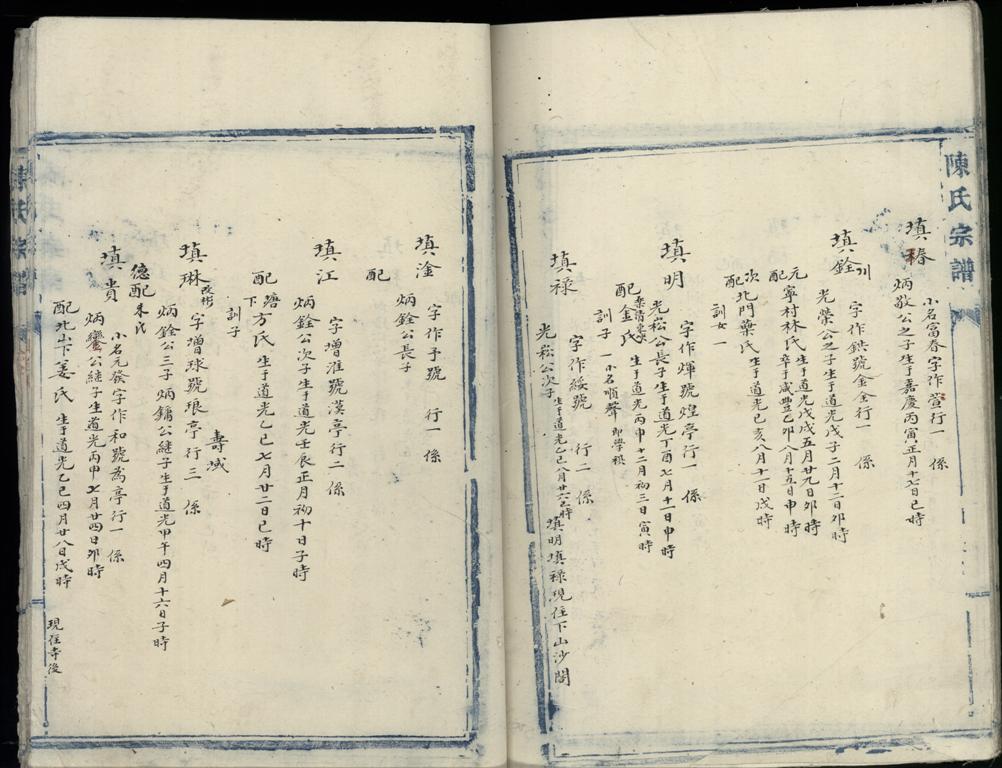 陳氏宗譜
填椿
小名富春字作萱行一 係
炳敬公之子生于嘉慶丙寅正月十七日巳時
填銓
字作鉷號金金行一 係
光榮公之子生于道光戊子二月十二日卯時
元配寧村林氏生于道光戊戌五月廿九日卯時
卒于咸豐乙卯八月十五日申時
次配北門葉氏生于道光己亥八月十一日戌時
訓女一
填明
字作煇號煌亭行一 係
光崧公長子生于道光丁酉七月十一日申時
配金氏生于道光丙申十二月初三日寅時
訓子 一 小名順聲 即學樸
填祿
字作綏號 行二 係
光崧公次子生于道光乙巳八月廿六巳時
填明填祿現住下山沙閣
填淦
字作予號 行一 係
炳銓公長子
配
填江
字增淮號漢亭行二 係
炳銓公次子生于道光壬辰正月初十日子時
配塘下方氏生于道光乙巳七月廿二日巳時
訓子
壽域
填琳 改彬
字增球號琅亭行三 係
炳銓公三子炳鏞公繼子生于道光甲午四月十六日子時
德配朱氏
填貴
小名元發字作和號為亭行一 係
炳鑾公繼子生道光丙申七月廿四日卯時
配北山下姜氏生于道光乙巳四月廿八日戌時
現住寺後